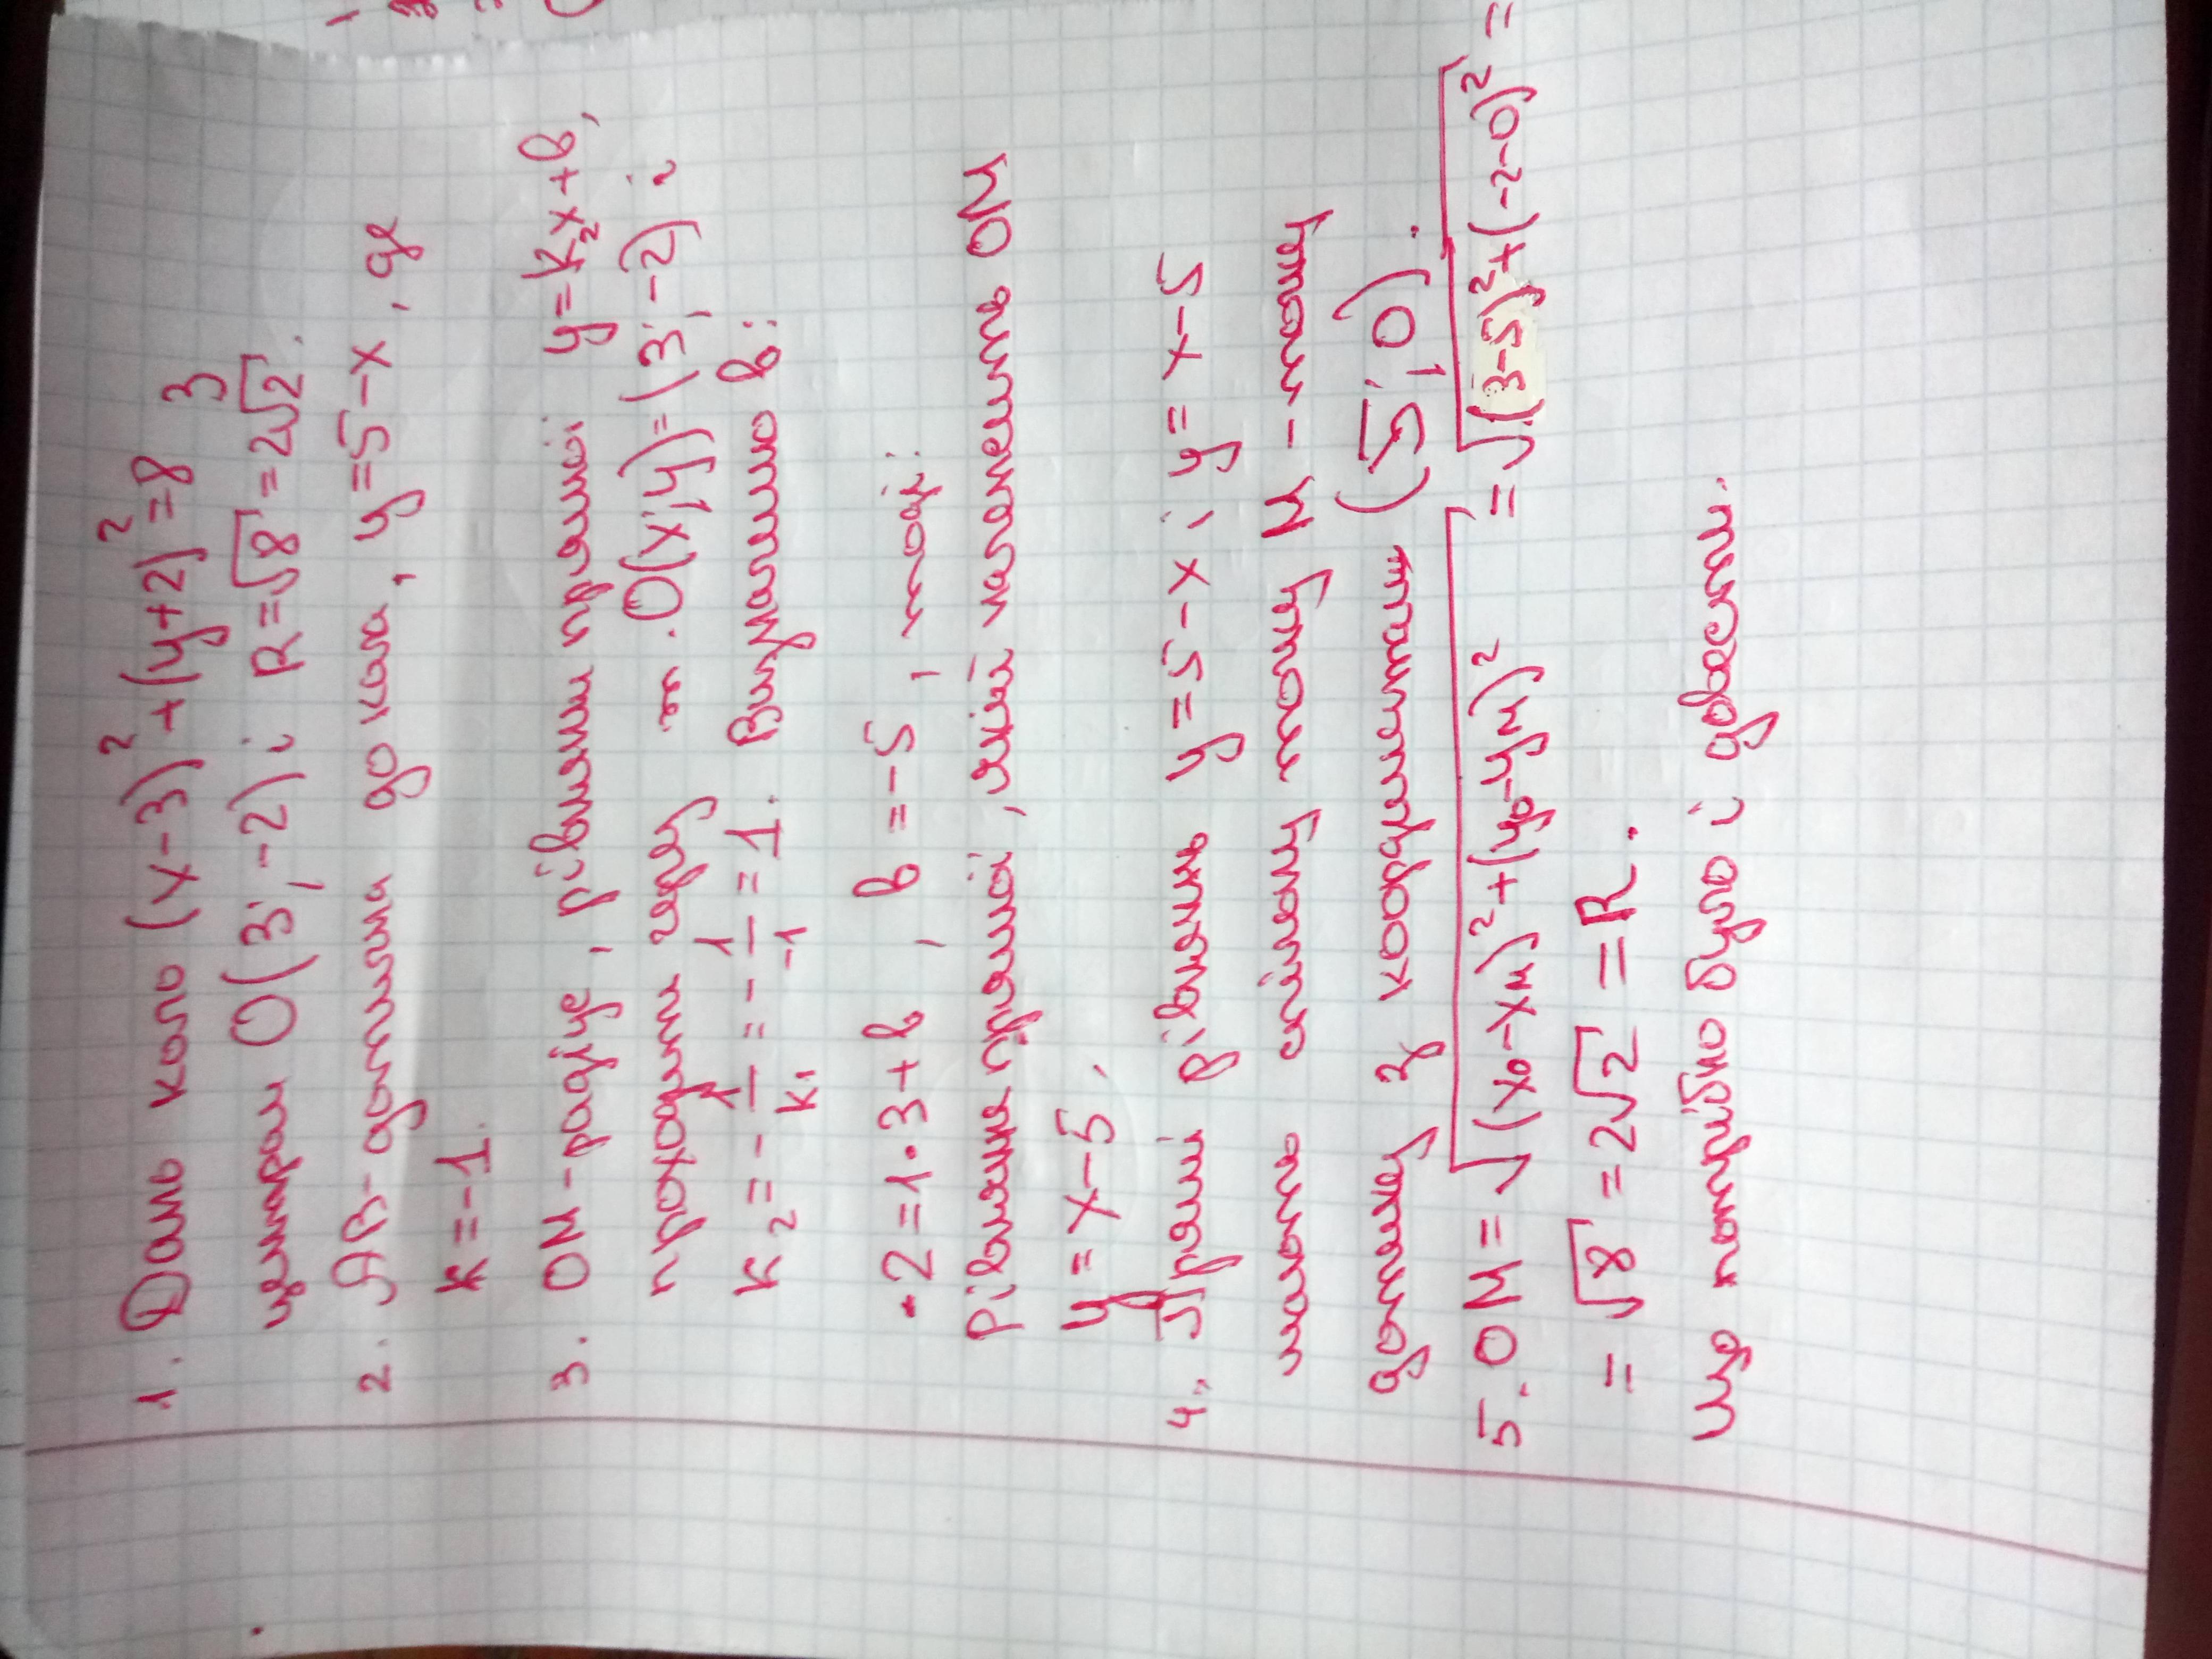 1. Дано коло (x-3)²+(y+2)²=8 з
центром O(3;-2) і R=√8=2√2.
2. AB-дотична до кола, y=5-x, де
k=-1.
3. OM-радіус, рівняння прямої y=k₂x+b,
проходить через т.O(x;y)=(3;-2) і
k₂=-1/k₁=-1/-1=1. Визначимо b:
-2=1·3+b, b=-5, тоді:
Рівняння прямої, якій належить OM
y=x-5.
4. Прямі рівнянь y=5-x і y=x-5
мають спільну точку M-точку
дотику з координатами (5;0).
5. OM=√(x₀-xм)²+(y₀-yм)²=√(3-5)²+(-2-0)²=
=√8=2√2=R.
Що потрібно було і довести.